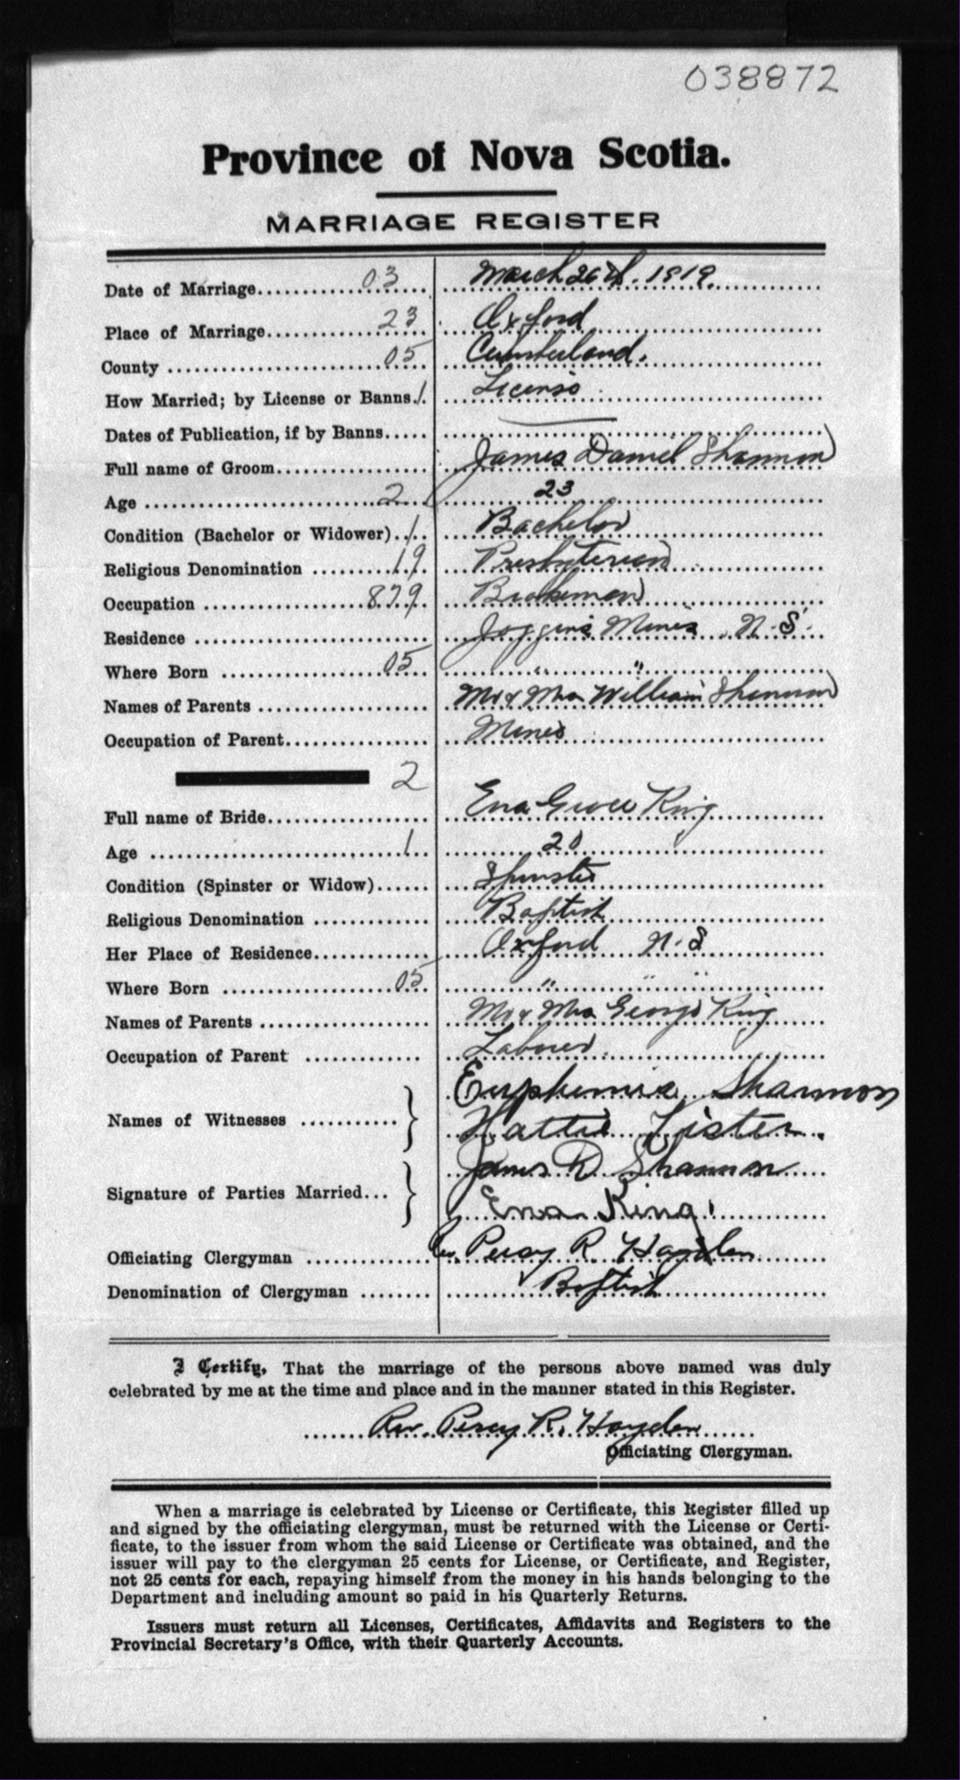 038872
Province of Nova Scotia.
MARRIAGE REGISTER
Date of Marriage 03 March 26th. 1919.
Place of Marriage 23 Oxford
County 05 Cumberland.
How Married; by License or Banns. 1 License
Dates of Publication, if by Banns
Full name of Groom James Daniel Shannon
Age 2 23
Condition (Bachelor or Widower) 1 Bachelor
Religious Denomination 19 Presbyterian
Occupation 879 Brakeman
Residence Joggins Mines N.S.
Where Born 05 " "
Names of Parents Mr & Mrs William Shannon
Occupation of Parent Miner
2
Full name of Bride Ena Grace King
Age 1 20
Condition (Spinster or Widow) Spinster
Religious Denomination Baptist
Her Place of Residence Oxford N.S
Where Born 05 " " "
Names of Parents Mr & Mrs George King
Occupation of Parent Laborer.
Names of Witnesses Euphemia Shannon
Hattie Lister.
Signature of Parties Married James D Shannon
Ena King
Officiating Clergyman Rev. Percy R. Hayden
Denomination of Clergyman Baptist
I Certify, That the marriage of the persons above named was duly
celebrated by me at the time and place and in the manner stated in this Register.
Rev. Percy R. Hayden
Officiating Clergyman.
When a marriage is celebrated by License or Certificate, this Register filled up
and signed by the officiating clergyman, must be returned with the License or Certi-
ficate, to the issuer from whom the said License or Certificate was obtained, and the
issuer will pay to the clergyman 25 cents for License, or Certificate, and Register,
not 25 cents for each, repaying himself from the money in his hands belonging to the
Department and including amount so paid in his Quarterly Returns.
Issuers must return all Licenses, Certificates, Affidavits and Registers to the
Provincial Secretary's Office, with their Quarterly Accounts.